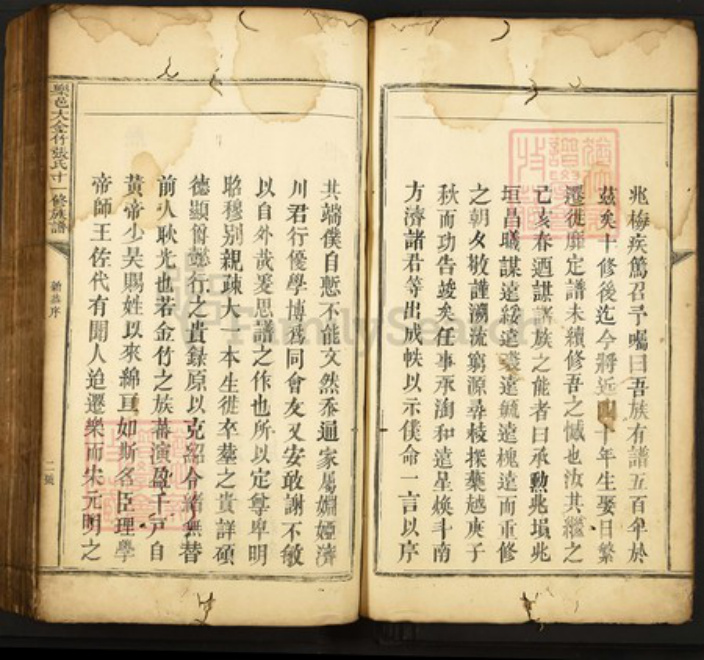 兆梅疾篤召予囑曰吾族有譜五百年於
茲矣十修後迄今將近四十年生娶日繁
遷徙靡定譜未續修吾之憾也汝其繼之
己亥春迺謀諸族之能者曰承勲兆塤兆
垣昌曦謀遠綏遠 遠毓遠槐遠而重修
之朝夕敬謹溯流窮源尋枝探葉越庚子
秋而功告竣矣任事承洵和遠星煥斗南
方濟諸君等出成帙以示僕命一言以序
其端僕自慙不能文然忝通家屬婣婭濟
川君行優學博爲同會友又安敢謝不敏
以自外哉爰思譜之作也所以定尊卑明
昭穆别親疎大一本生徙卒塟之貴詳碩
德顯爵懿行之貴録原以克紹令緒無替
前人耿光也若金竹之族蕃演盈千戸自
黄帝少昊賜姓以來綿亘如斯名臣理學
帝師王佐代有聞人迨遷樂而宋元明之
樂邑大金竹張氏十一修族譜
序
二
FamilySearch